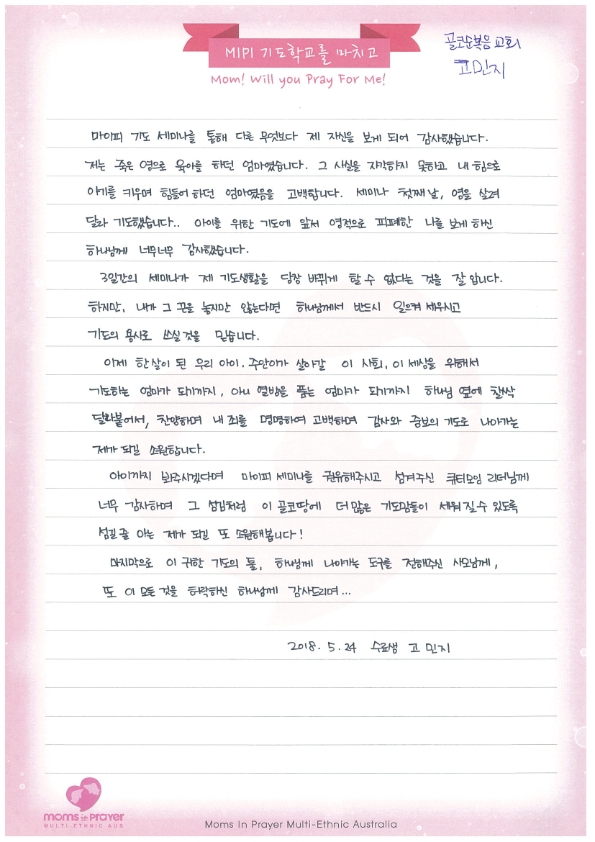 MIPI 기도학교를 마치고
골코순복음교회
고민지
Mom! Will you Pray For Me!
마이피 기도 세미나를 통해 다른 무엇보다 제 자신을 보게 되어 감사했습니다.
저는 죽은 영으로 육아를 하던 엄마였습니다. 그 사실을 자각하지 못하고 내 힘으로
아기를 키우며 힘들어 하던 엄마였음을 고백합니다. 세미나 첫째 날, 영을 살려
달라 기도했습니다.. 아이를 위한 기도에 앞서 영적으로 피폐한 나를 보게 하신
하나님께 너무너무 감사했습니다.
3일간의 세미나가 제 기도생활을 당장 바뀌게 할 수 없다는 것을 잘 압니다.
하지만, 내가 그 끈을 놓지만 않는다면 하나님께서 반드시 일으켜 세우시고
기도의 용사로 쓰실 것을 믿습니다.
이제 한 살이 된 우리 아이. 주안이가 살아갈 이 사회, 이 세상을 위해서
기도하는 엄마가 되기까지, 아니 열방을 품는 엄마가 되기까지 하나님 옆에 찰싹
달라붙어서, 찬양하며 내 죄를 명명하여 고백하며 감사와 중보의 기도로 나아가는
제가 되길 소원합니다.
아이까지 봐주시겠다며 마이피 세미나를 권유해주시고 섬겨주신 큐티모임 리더님께
너무 감사하며 그 섬김처럼 이 골코땅에 더 많은 기도맘들이 세워질 수 있도록
섬길 줄 아는 제가 되길 또 소원해봅니다!
마지막으로 이 귀한 기도의 툴, 하나님께 나아가는 도구를 전해주신 사모님께,
또 이 모든 것을 허락하신 하나님께 감사드리며...
2018. 5. 24 수료생 고 민지
moms in prayer
MULTI-ETHNIC AUS
Moms In Prayer Multi-Ethnic Australia